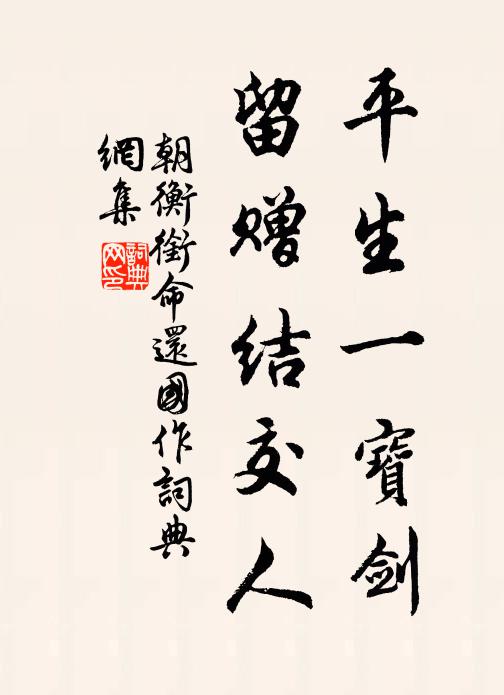 平生一寶劍
留贈結交人
朝衡銜命還國作詞典
網集
詞典
网印